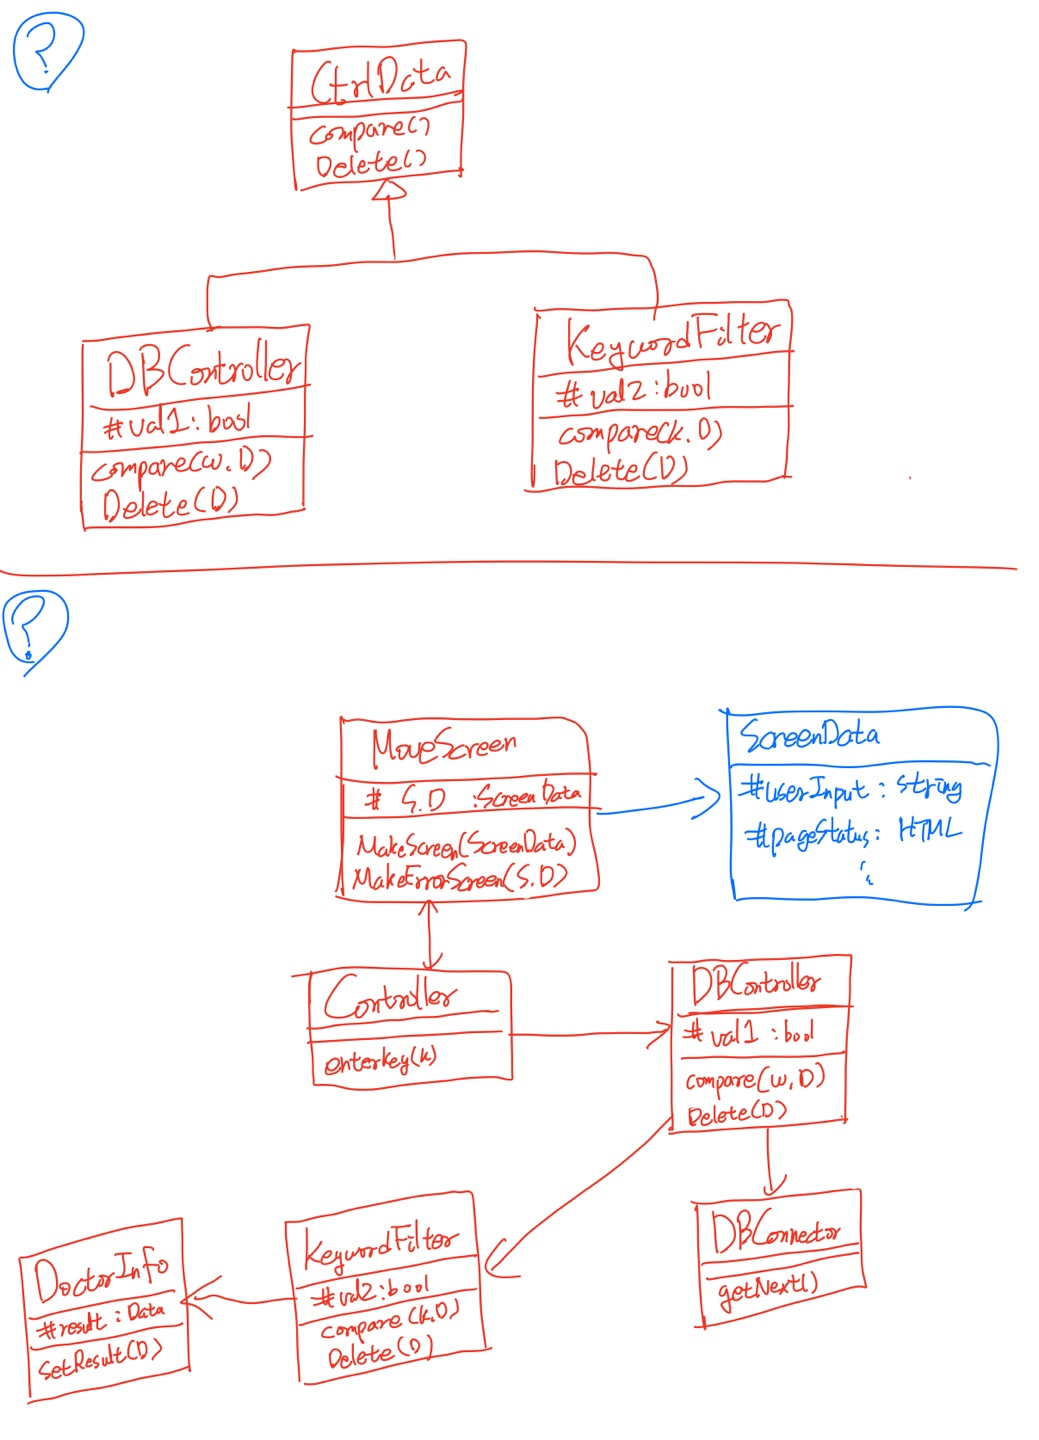 ?
CtrlData
compare()
Delete()
DBController
#val1: bool
compare(w.D)
Delete(D)
KeywordFilter
#val2:bool
compare(k.D)
Delete(D)
?
MoveScreen
# S.D :ScreenData
MakeScreen(ScreenData)
MakeErrorScreen(S.D)
ScreenData
#userInput: string
#pageStatus: HTML
Controller
enterkey(k)
DBController
#val1 :bool
compare(w,D)
Delete(D)
DBConnector
getNext()
KeywordFilter
#val2:bool
compare(k.D)
Delete(D)
DoctorInfo
#result: Data
setResult(D)